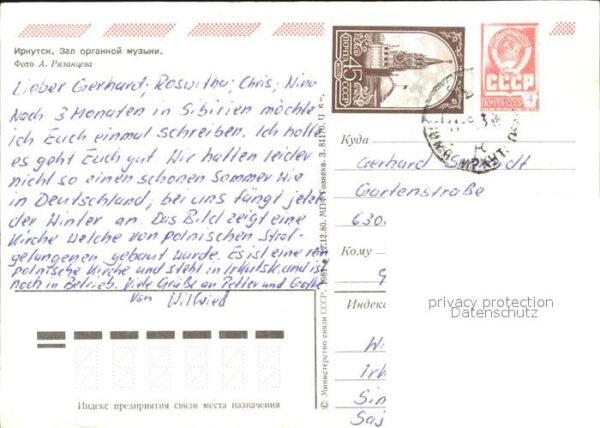 Иркутск. Зал органной музыки.
Фото А. Рязанцева
Lieber Gerhardt, Roswitha, Chris, Nina
Nach 3 Monaten in Sibirien möchte
ich Euch einmal schreiben. Ich hoffe
es geht Euch gut. Wir hatten leider
nicht so einen schönen Sommer wie
in Deutschland, bei uns fängt jetzt
der Winter an. Das Bild zeigt eine
Kirche welche von polnischen Straf-
gefangenen gebaut wurde. Es ist eine
polnische Kirche und steht in Irkutsk und ist
noch in Betrieb. Viele Grüße an
von Wilfried
Индекс предприятия связи места назначения
© Министерство связи СССР. 1981
12.80. МПФ Гознака. З. 81170. Ц 8 к.
ПОЧТА
45к
СССР
СССР
ПОЧТА СССР 4к
Куда
Gerhard
Gartenstraße
630
Кому
G
privacy protection
Datenschutz
Индекс
W
Irk
Sim
Saj